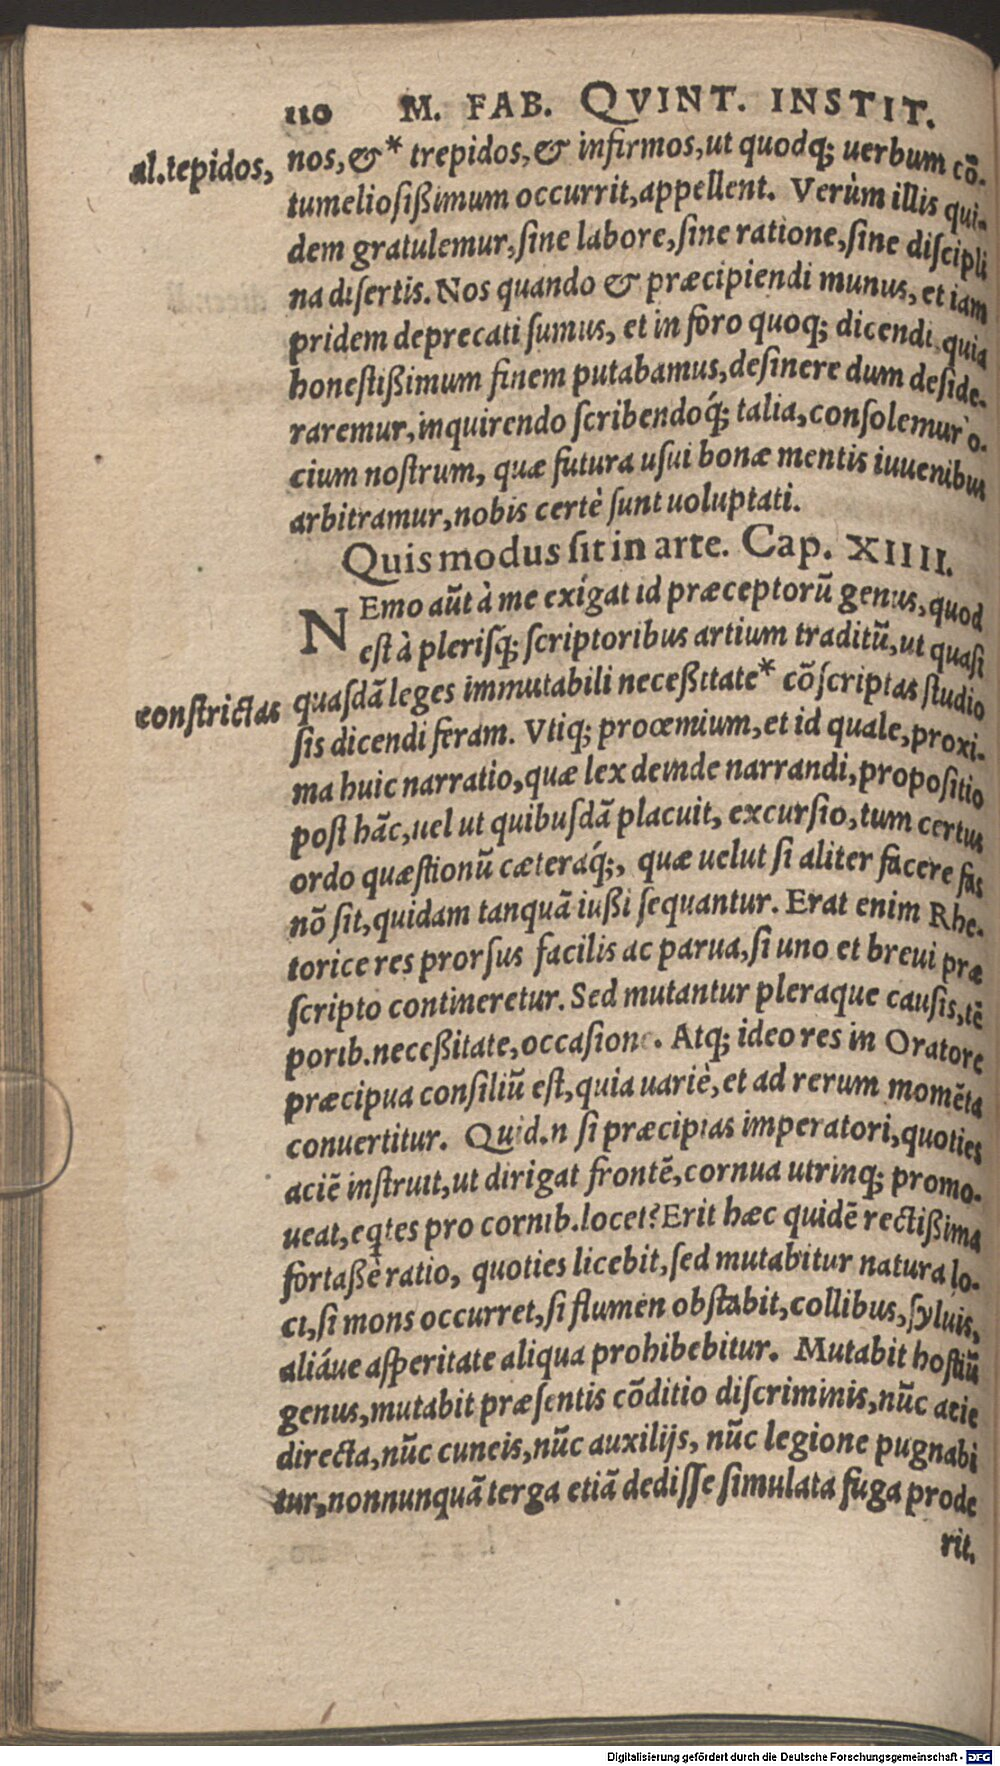 110 M. FAB. QVINT. INSTIT.
al. tepidos,
nos, &* trepidos, & infirmos, ut quodq; uerbum cō-
tumeliosißimum occurrit, appellent. Verùm illis qui-
dem gratulemur, ſine labore, ſine ratione, ſine diſcipli
na diſertis. Nos quando & præcipiendi munus, et iam
pridem deprecati ſumus, et in foro quoq; dicendi, quia
honeſtißimum finem putabamus, deſinere dum deſide-
raremur, inquirendo ſcribendoq́; talia, conſolemur o-
cium noſtrum, quæ futura uſui bonæ mentis iuuenibus
arbitramur, nobis certè ſunt uoluptati.
Quis modus ſit in arte. Cap. XIIII.
NEmo aūt à me exigat id præceptorū genus, quod
eſt à pleriſq; ſcriptoribus artium traditū, ut quaſi
quaſdā leges immutabili neceßitate* cōſcriptas ſtudio
conſtrictas
ſis dicendi feram. Vtiq; proœmium, et id quale, proxi-
ma huic narratio, quæ lex deinde narrandi, propoſitio
poſt hāc, uel ut quibuſdā placuit, excurſio, tum certus
ordo quæſtionū cæteraq́;, quæ uelut ſi aliter facere fas
nō ſit, quidam tanquā iußi ſequantur. Erat enim Rhe-
torice res prorſus facilis ac parua, ſi uno et breui præ
ſcripto contineretur. Sed mutantur pleraque cauſis, tē
porib. neceßitate, occaſione. Atq; ideo res in Oratore
præcipua conſiliū eſt, quia uariè, et ad rerum momēta
conuertitur. Quid.n ſi præcipias imperatori, quoties
aciē inſtruit, ut dirigat frontē, cornua utrinq; promo-
ueat, eqtes pro cornib. locet? Erit hæc quidē rectißima
fortaßè ratio, quoties licebit, ſed mutabitur natura lo-
ci, ſi mons occurret, ſi flumen obſtabit, collibus, ſyluis,
aliáue aſperitate aliqua prohibebitur. Mutabit hoſtiū
genus, mutabit præſentis cōditio diſcriminis, nūc acie
directa, nūc cuneis, nūc auxilijs, nūc legione pugnabi
tur, nonnunquā terga etiā dediſſe ſimulata fuga prode
rit.
Digitalisierung gefördert durch die Deutsche Forschungsgemeinschaft - DFG